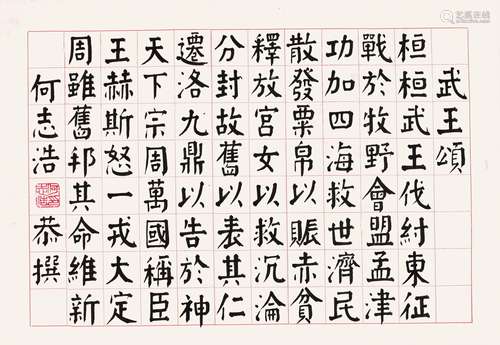 武王頌
桓桓武王伐紂東征
戰於牧野會盟孟津
功加四海救世濟民
散發粟帛以賑赤貧
釋放宮女以救沉淪
分封故舊以表其仁
遷洛九鼎以告於神
天下宗周萬國稱臣
王赫斯怒一戎大定
周雖舊邦其命維新
何志浩恭撰